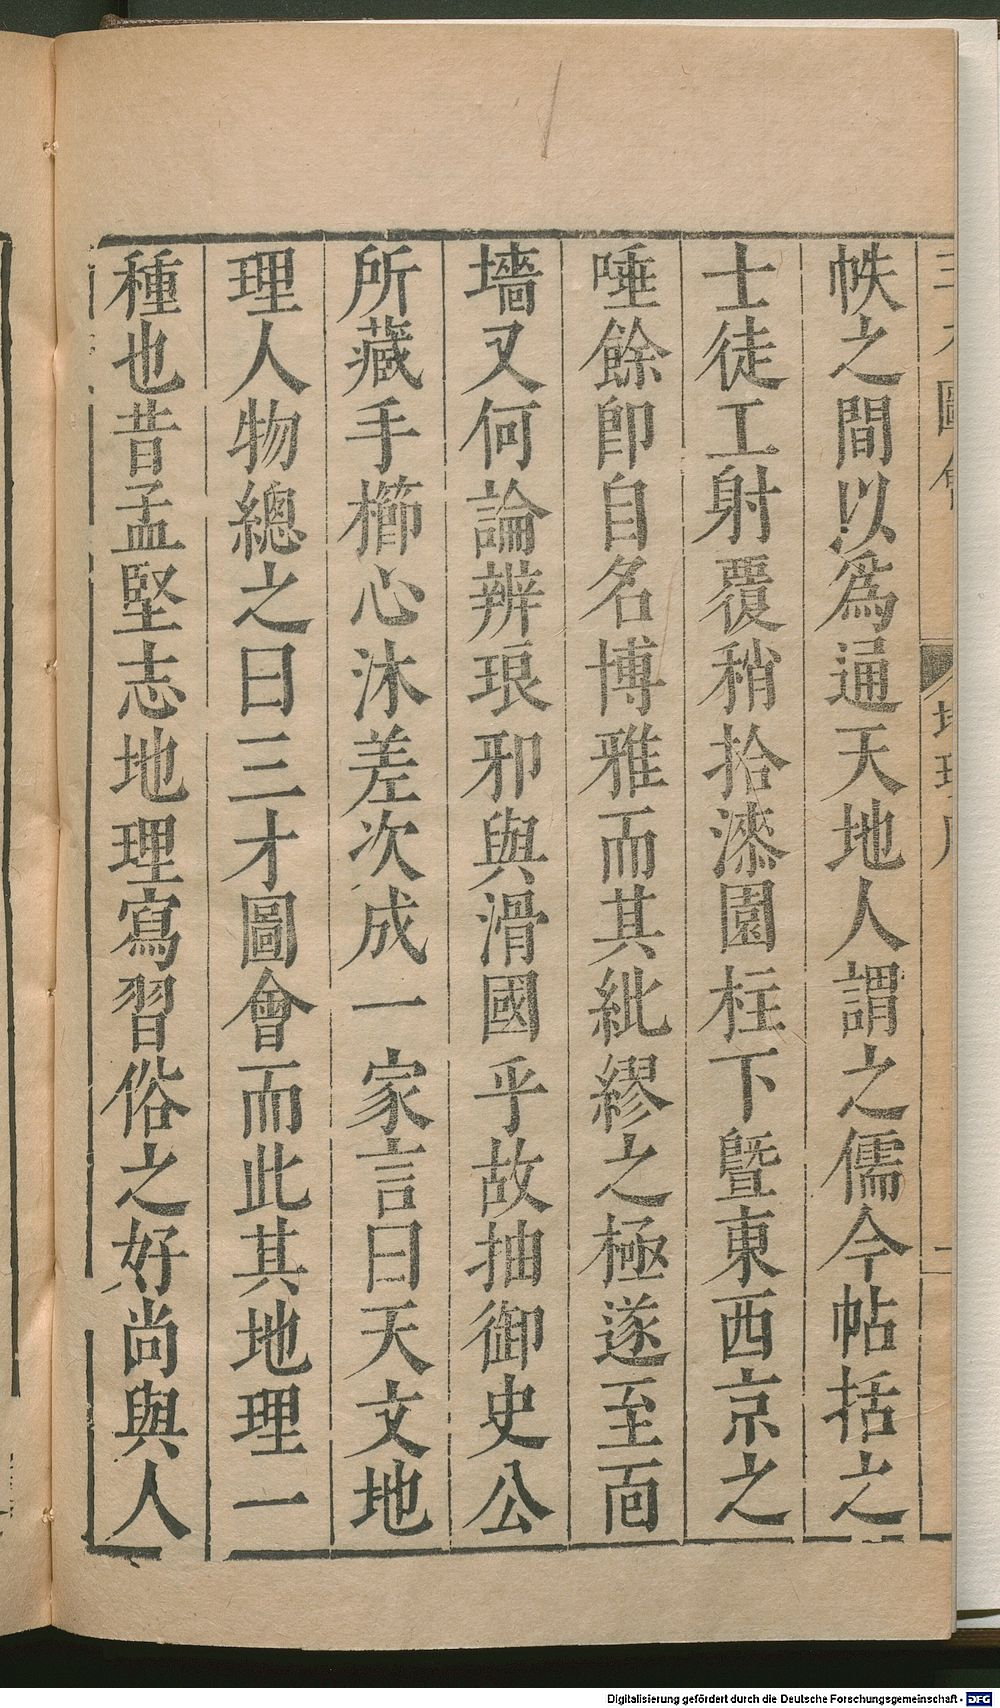 帙之間以爲通天地人謂之儒今帖括之
士徒工射覆稍拾漆園柱下曁東西京之
唾餘卽自名博雅而其紕繆之極遂至面
墻又何論辨琅邪與滑國乎故抽御史公
所藏手櫛心沐差次成一家言曰天文地
理人物總之曰三才圖會而此其地理一
種也昔孟堅志地理寫習俗之好尚與人
Digitalisierung gefördert durch die Deutsche Forschungsgemeinschaft - DFG